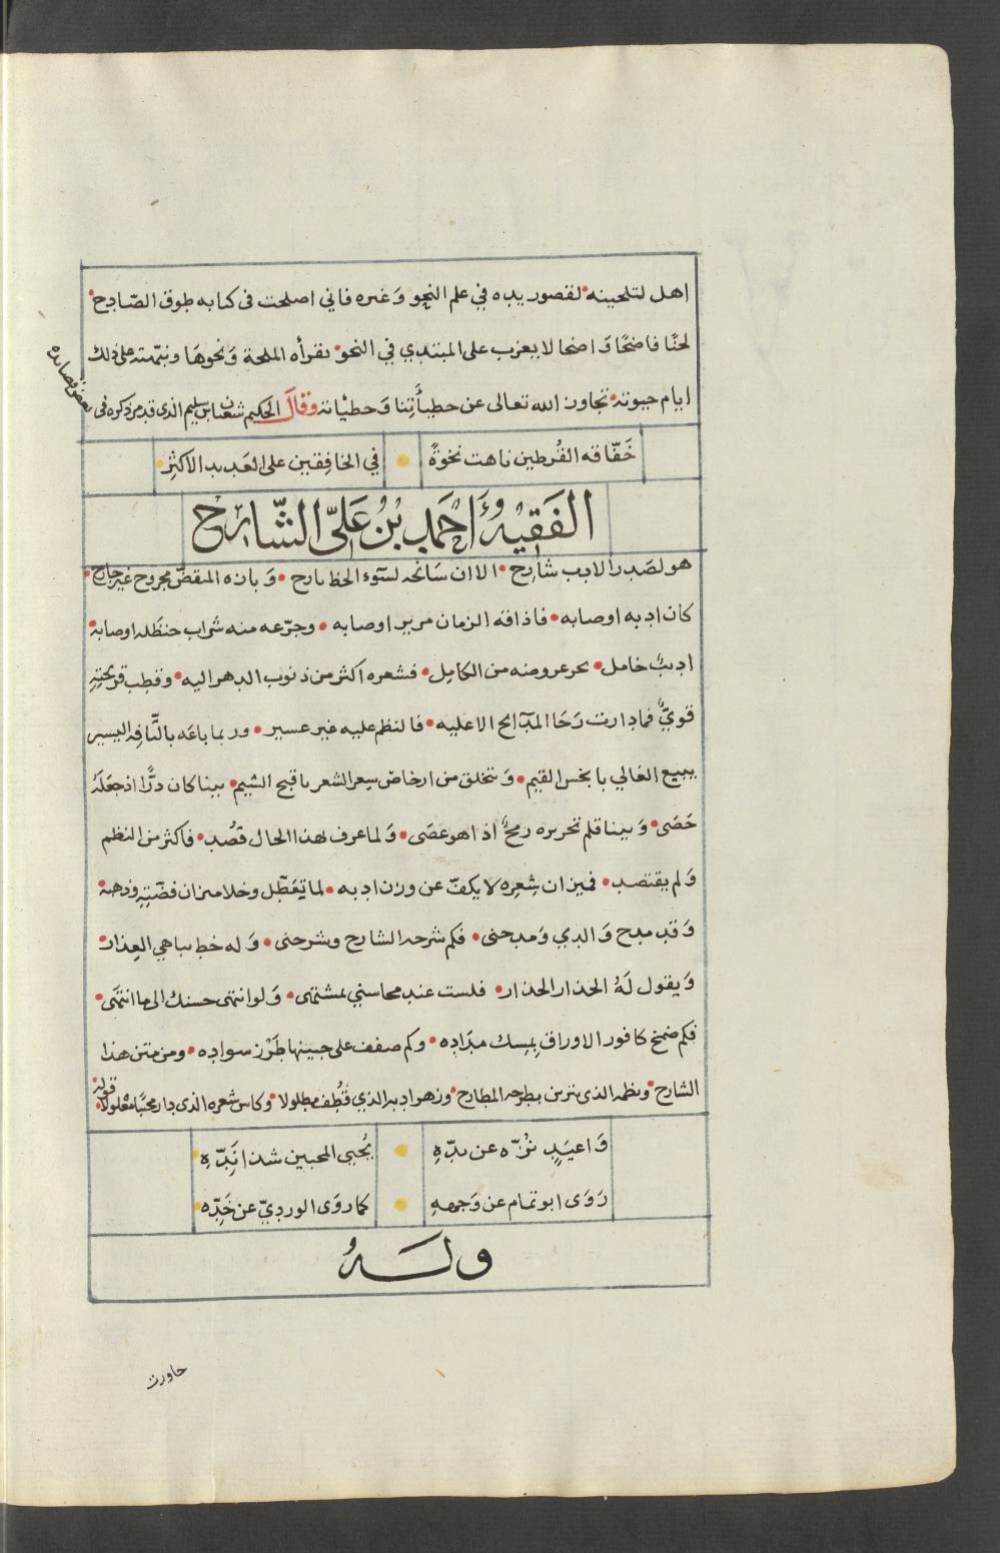 اهل لتلحينه لقصور يده في علم النحو وغيره فاني اصلحت في كتابه طوق الصّادح
لحنًا فاضحًا واضحا لا يعزب على المبتدي في النحو بقرأه الملحة وَنحوهَا ونبّهته على ذلك
ايام حيوته تجاوز الله تعالى عن خطيأتنا وَخطئاته وقَالَ الحكيم شعبان بن سليم الذى قد مر ذكره فى
بعض قصايده
خَفّاقه القُرطين تاهت نخوةً في الخافِقين على العَديد الاكثِر
الفَقِيْهُ أَحْمَد بْنُ عَلِيّ الشّارِحْ
هو لصَدر الادب شارِح الا ان سَانحه لسَوء الحظ بارح وَبازه المنقضّ مجروح غير جارح
كان ادبه اوصابه فاذاقه الزمان مرير اوصابه وجرّعه منه شراب حنظله اوصابه
اديبٌ خامل بحر عروضه من الكامِل فشعره اكثر من ذنوب الدهر اليه وقطب قريحتِهِ
قويٌّ فمادارت رَحَا المدَآئح الا عليه فالنظم عليه غير عسير وربما باعَه بالتّافِه اليسير
يبيع الغالي بابخس القيم وَتتخلق من ارخاص سِعر الشعر باقبح الشيم بينا كان درًّا اذ جعَلَهُ
حَصَى وَبينا قلم تحريره رمحٌ اذا هو عصَى وَلما عرف بهذا الحال قصُد فاكثر من النظم
وَلم يقتصد فميزان شِعرِه لا يكفّ عن وزن ادبه لما تعَطّل وخلا ميزان فضّتِهِ وذهبه
وَقد مدح وَالدي وَمدحنى فكم شرحه الشارح وشرحنى وَله خط يباهي العِذار
وَيقول لَهُ الحذار الحذار فلست عند محاسني بمشتهى وَلو انتهى حسنك الى ما انتهَى
فكم ضمخ كافور الاوراق بِمِسك مِدَادِه وكم صفف على جبينها طَرْز سوادِه ومن متن هذا
الشارح ونظمه الذى تزين بطرحه المطارح وزهو ادبه الذي قُطف مطلولا وكاس شعره الذى دار محبًا معلولا
قوله
وَاغيَدٍ نُزّه عن ندّهِ يُحيى المحبين شذا نَدِّه
رَوَى ابو تمام عن وَجههِ كما روَى الوردِيّ عن خَدِّه
ولَـــهُ
حاورت